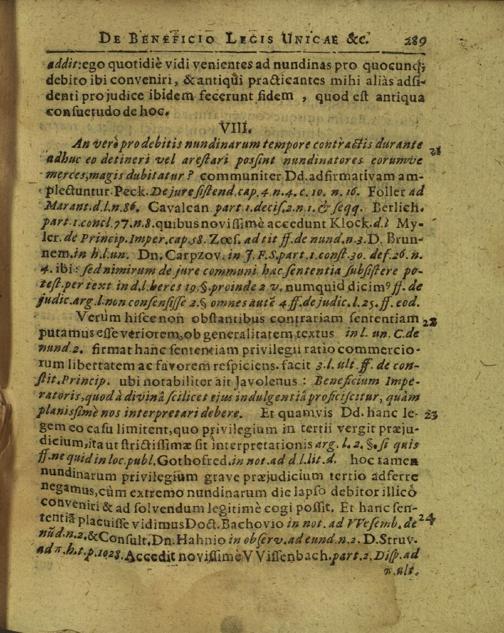 DE BENEFICIO LEGIS UNICAE &c. 289
addit: ego quotidiè vidi venientes ad nundinas pro quocunq;
debito ibi conveniri, & antiqùi practicantes mihi aliàs adsi-
denti pro judice ibidem fecerunt fidem, quod est antiqua
consuetudo de hoc.
VIII.
An verò pro debitis nundinarum tempore contractis durante
adhuc eo detineri vel arestari possint nundinatores eorumve 21
merces, magis dubitatur? communiter Dd. adfirmativam am-
plectuntur. Peck. De jure sistend. cap. 4. n. 4. c. 10. n. 16. Foller ad
Marant. d. l. n. 86. Cavalcan. part. 1. decis. 2. n. 1. & seqq. Berlich.
part. 1. concl. 77. n. 8. quibus novissimè accedunt Klock. d. l. My-
ler. de Princip. Imper. cap. 58. Zoes. ad tit ff. de nund. n. 3. D. Brun-
nem. in h. l. un. Dn. Carpzov. in J. F. S. part. 1. const. 30. def. 26. n.
4. ibi: sed nimirum de jure communi hac sententia subsistere po-
test. per text in d. l. beres 19. § proinde 2 v. numquid dicimꝰ ff. de
judic. arg. l. non consensisse 2. § omnes autē 4 ff. de judic. l. 25. ff. eod.
Verùm hisce non obstantibus contrariam sententiam 22
putamus esse veriorem, ob generalitatem textus in l. un. C. de
nund. 2. firmat hanc sententiam privilegii ratio commercio-
rum libertatem ac favorem respiciens. facit 3. l. ult ff. de con-
stit. Princip. ubi notabiliter ait Javolenus: Beneficium Impe-
ratoris, quod à divinâ scilicet ejus indulgentiâ proficiscitur, quàm
planissimè nos interpretari debere. Et quamvis Dd. hanc le- 23
gem eo casu limitent, quo privilegium in tertii vergit præju-
dicium, ita ut strictissimæ sit interpretationis arg. l. 2. §. si quis
ff. ne quid in loc. publ. Gothofred. in not. ad d. l. lit. d. hoc tamen
nundinarum privilegium grave præjudicium tertio adferre
negamus, cùm extremo nundinarum die lapso debitor illicò
conveniri & ad solvendum legitimè cogi possit. Et hanc sen-
tentiā placuisse vidimus Doct. Bachovio in not. ad Wesemb. de 24
nūd. n. 2. & Consult. Dn. Hahnio in observ. ad eund. n. 2. D. Struv.
ad n. h. t. p. 1028. Accedit novissimè VVissenbach. part. 2. Disp. ad
n. ult.